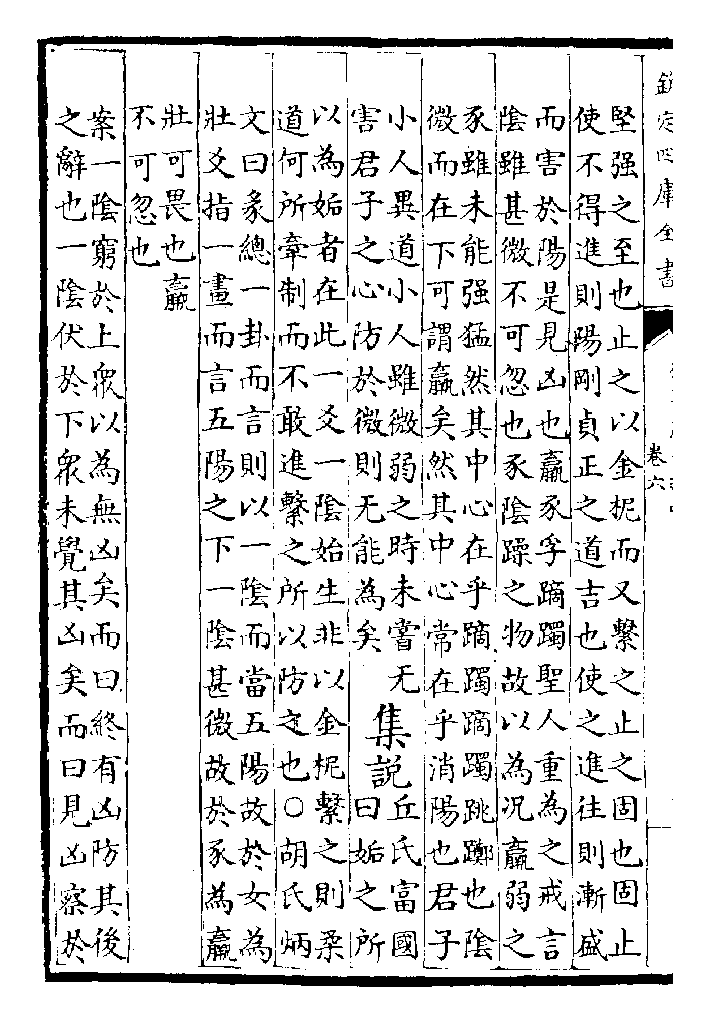 欽定四庫全書
卷六
堅强之至也止之以金柅而又繫之止之固也固止
使不得進則陽剛貞正之道吉也使之進往則漸盛
而害於陽是見凶也羸豕孚蹢躅聖人重為之戒言
陰雖甚微不可忽也豕陰躁之物故以為况羸弱之
豕雖未能强猛然其中心在乎蹢躅蹢躅跳躑也陰
微而在下可謂羸矣然其中心常在乎消陽也君子
小人異道小人雖微弱之時未嘗无
害君子之心防於微則无能為矣
集說
丘氏富國
曰姤之所
以為姤者在此一爻一陰始生非以金柅繫之則柔
道何所牽制而不敢進繫之所以防之也○胡氏炳
文曰彖總一卦而言則以一陰而當五陽故於女為
壯爻指一畫而言五陽之下一陰甚微故於豕為羸
壯可畏也羸
不可忽也
案一陰窮於上眾以為無凶矣而曰終有凶防其後
之辭也一陰伏於下眾未覺其凶矣而曰見凶察於